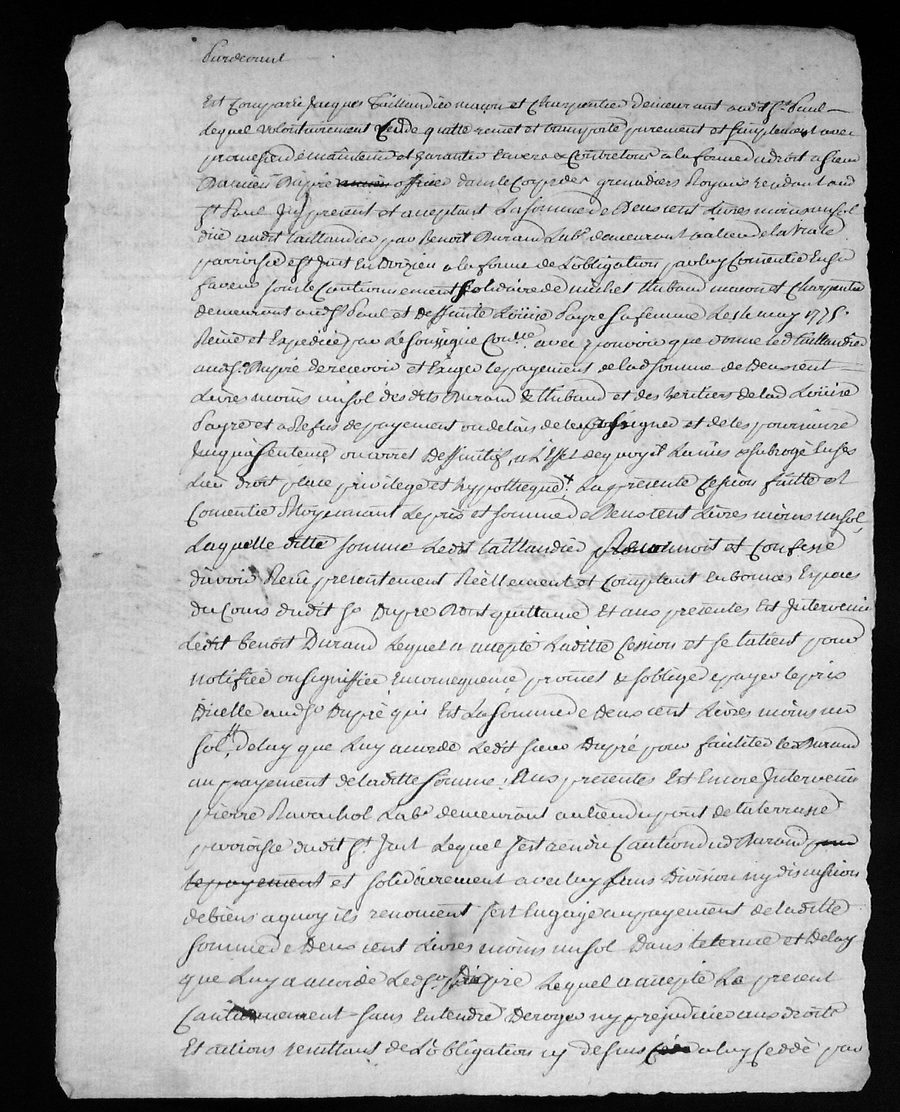 Pardevant
Est Comparu Jacques Taillandier maçon et Charpentier demeurant audit St Paul
lequel volontairement Cède quitte remet et transporte purement et simplement avec
promesse de maintenir et garantir Envers & Contre tous a la forme du droit a sieur
Damien Dupré officier dans le Corps des grenadiers Royaux residant aud
St Paul Icy present et acceptant La somme de Deux cent Livres moins un sol
düe audit taillandier par Benoit Durand Labr demeurant au lieu de la
parroisse de St Just En a la forme de L'obligation par luy Consentie En sa
faveur sous le Cautionnement solidaire de michel thibaud macon et Charpentier
demeurant aud St Paul et deffunte Loüise Payre sa femme Le 14 may 1775.
Reçue et Expediée par Le soussigné avec pouvoir que donne led taillandier
aud sr Dupré de recevoir et Exiger le payement de lad somme de Deux cent
Livres moins un sol des dits Durand & thibaud et des heritiers de lad Loüise
Payre et a Refus de payement ou delais de les assigner et de les poursuivre
Jusqu'a sentence ou arret deffinitif, a L'Effet de quoy il La mis & subrogé En ses
Lieu droit place privilege et hypotheque La présente Cession faitte et
Consentie Moyennant Le prix et somme de Deux cent Livres moins un sol
Laquelle ditte somme Ledit taillandier reconnoit et Confesse
d'avoir Reçu presentement Reèllement et Comptant En bonnes Especes
du Cours dudit sr Dupré Dont quittance Et aux présentes Est Intervenu
Ledit benoit Durand Lequel a accepté Laditte Cession et se la tient pour
notiffiée ou signiffiée En consequence promet & s'oblige payer le prix
D'icelle aud sr Dupré qui Est La somme de Deux cent Livres moins un
sol, delay que Luy accorde Ledit sieur Dupré pour faciliter led Durand
au payement de laditte somme; Aux présentes Est Encore Intervenu
pierre Ravachol Labr demeurant au lieu du pont de la terrasse
parroisse dudit St Just Lequel s'est rendu Caution dud Durand pour
le payement et solidairement avec luy sans Division ny discussion
de biens a quoy ils renoncent s'est Engagé au payement de laditte
somme de Deux cent Livres moins un sol Dans le terme et Delay
que Luy a accordé Led sr Dupré Lequel a accepté Le présent
Cautionnement sans Entendre Deroger ny prejudicier aux droits
Et actions resultant de L'obligation cy dessus a luy Ceddé par